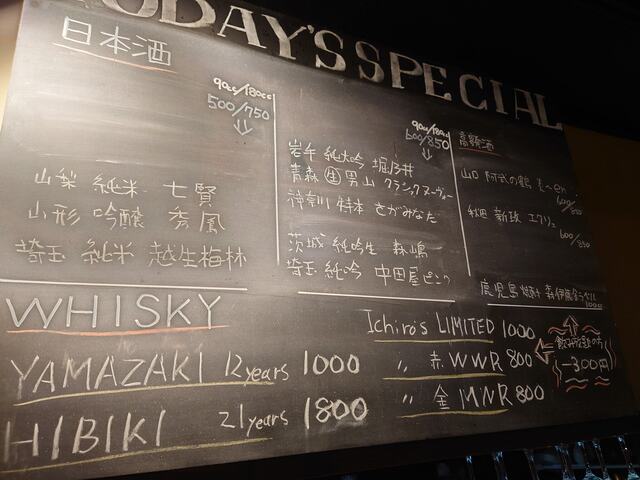 TODAY'S SPECIAL
日本酒
90cc/180cc
500/750
山梨 純米 七賢
山形 吟醸 秀鳳
埼玉 純米 越生梅林
90cc/180cc
600/850
岩手 純大吟 堀の井
青森 生 男山 クラシックヌーヴォー
神奈川 特本 さがみなだ
茨城 純吟生 森嶋
埼玉 純吟 中田屋ピンク
高額酒
山口 阿武の鶴
600/850
秋田 新政 エクリュ
600/850
鹿児島 焼酎 森伊蔵
WHISKY
YAMAZAKI 12years 1000
HIBIKI 21years 1800
Ichiro's LIMITED 1000
〃 赤 WWR 800
〃 金 MNR 800
飲み放題の方
-300円